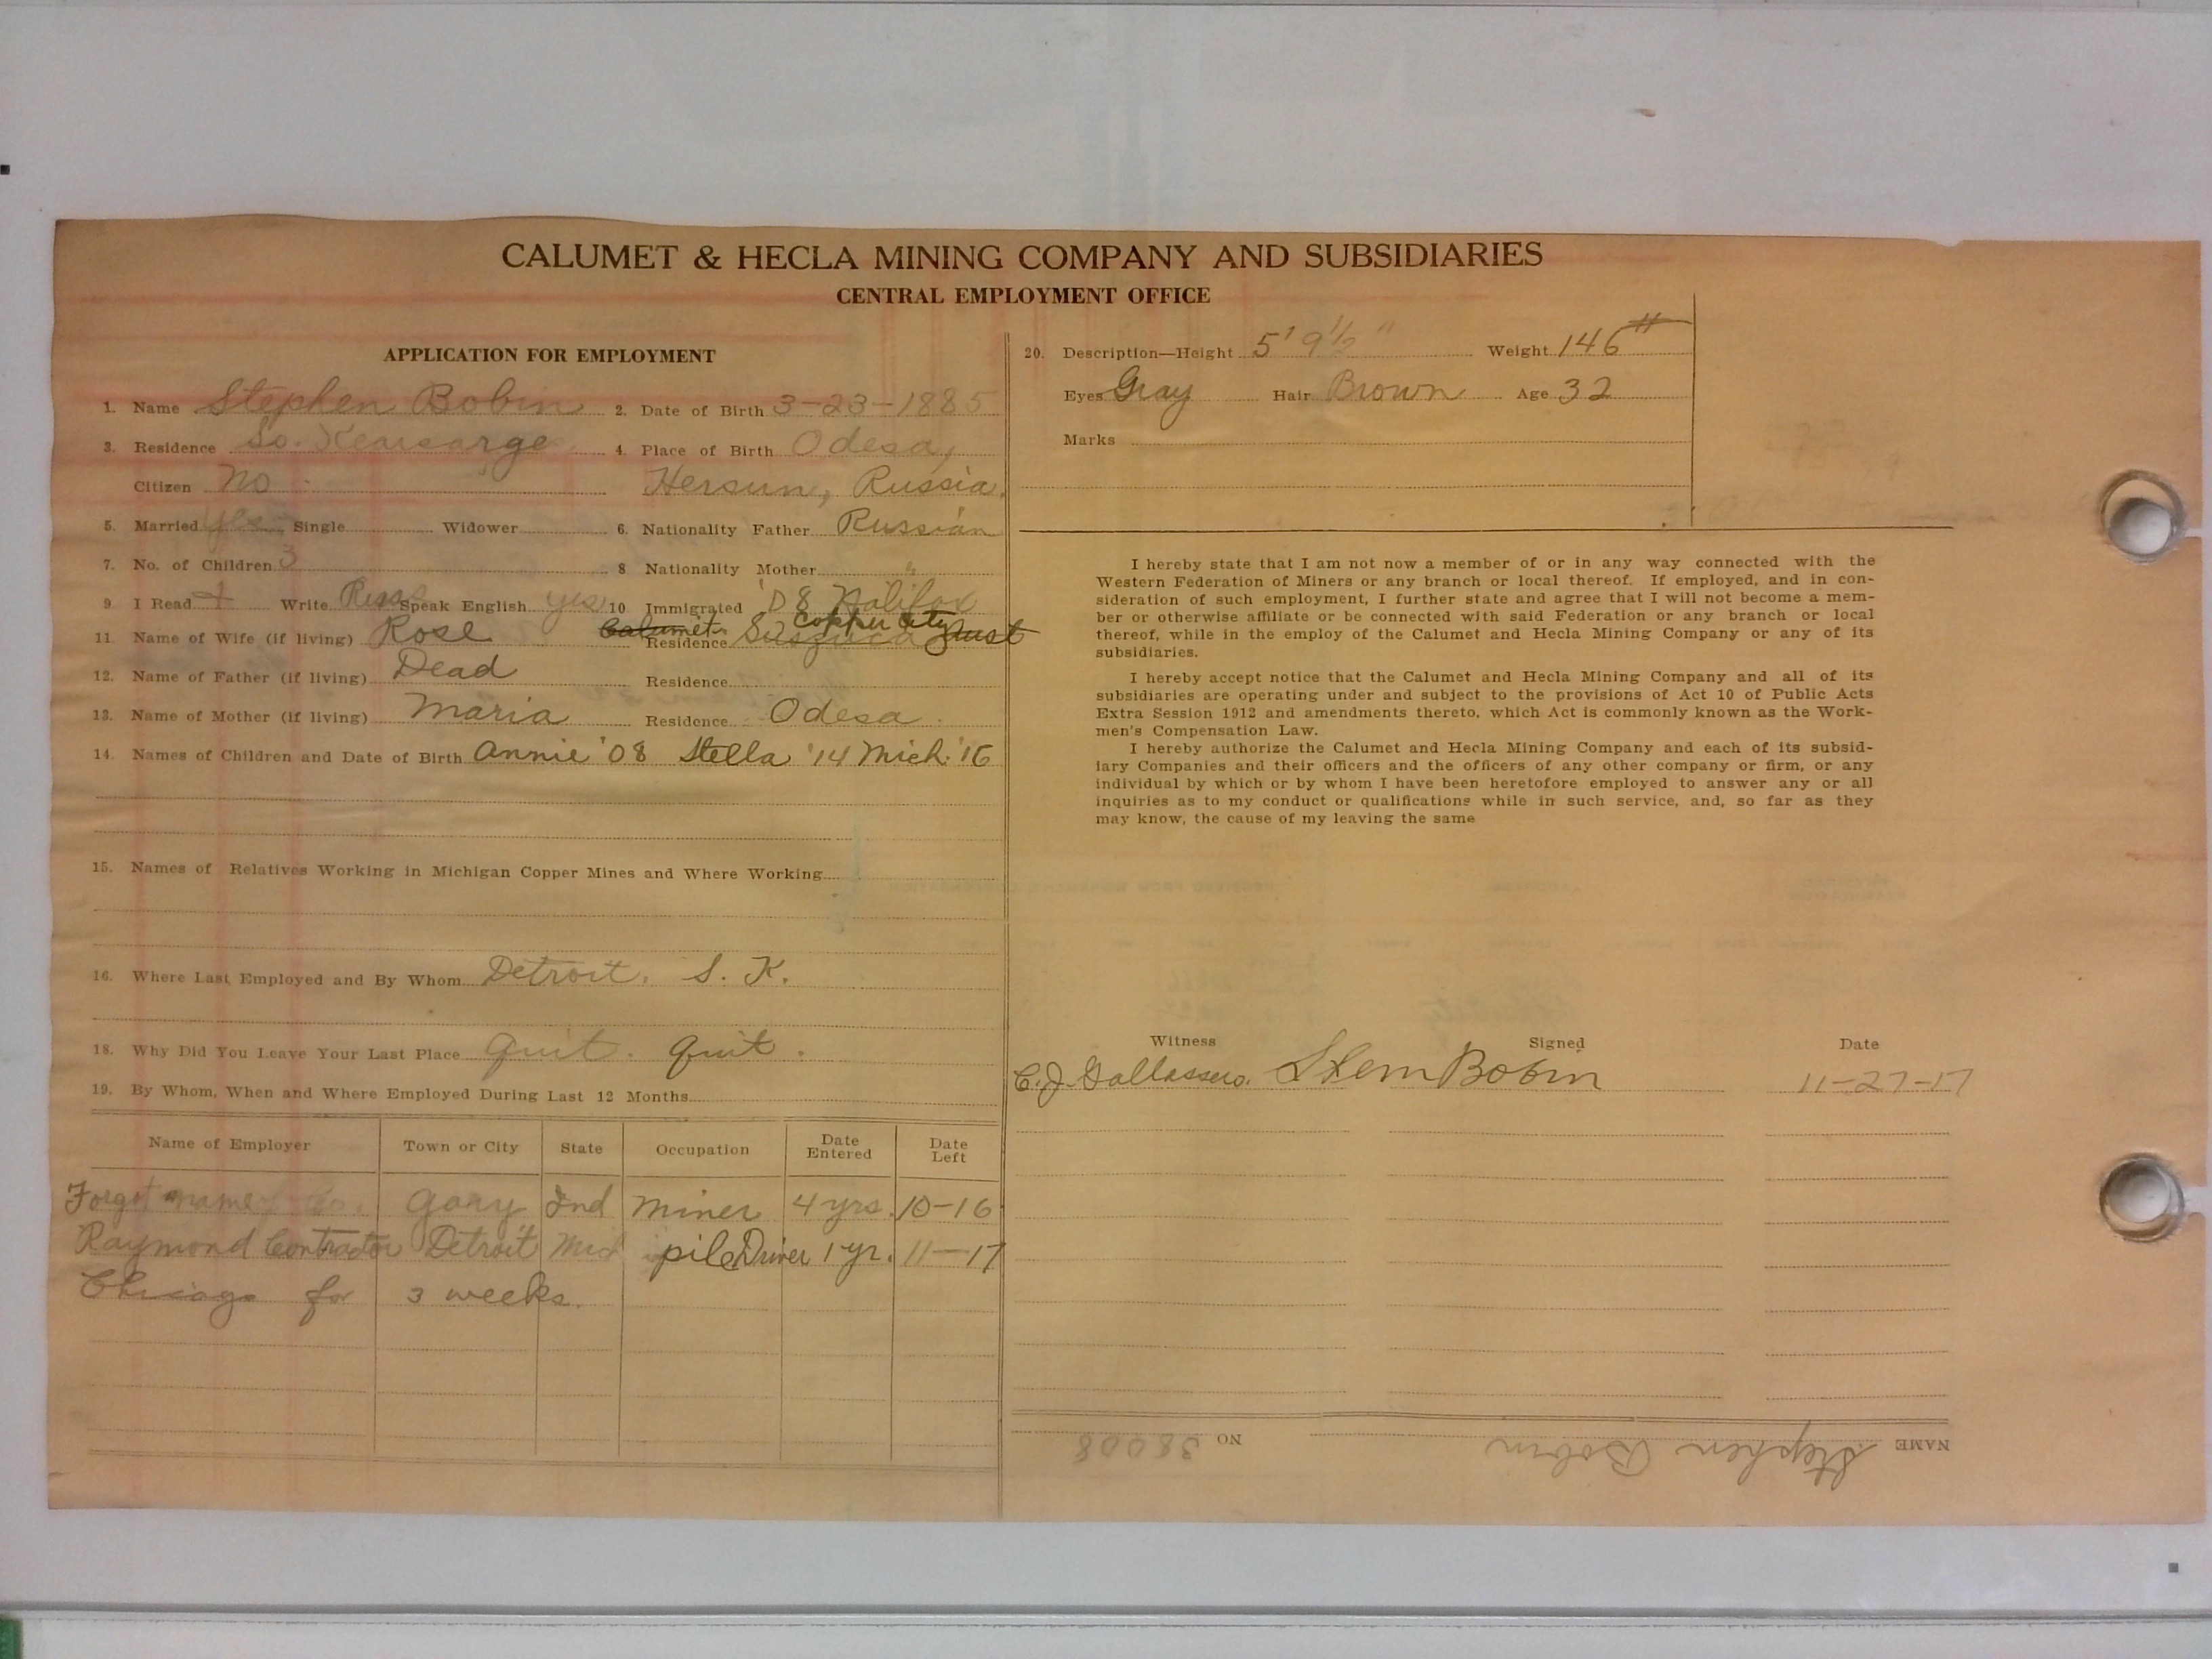 CALUMET & HECLA MINING COMPANY AND SUBSIDIARIES
CENTRAL EMPLOYMENT OFFICE
APPLICATION FOR EMPLOYMENT
1. Name Stephen Bobin 2. Date of Birth 3-23-1885
3. Residence So. Kearsarge 4. Place of Birth Odesa,
Citizen No Hersun, Russia.
5. Married yes Single Widower 6. Nationality Father Russian
7. No. of Children 3 8 Nationality Mother "
9. I Read + Write Russ Speak English yes 10. Immigrated '08 Halifax
11. Name of Wife (if living) Rose Calumet Residence Copper City
12. Name of Father (if living) Dead Residence
13. Name of Mother (if living) Maria Residence Odesa.
14. Names of Children and Date of Birth Annie '08 Stella '14 Mich. '16
15. Names of Relatives Working in Michigan Copper Mines and Where Working
16. Where Last Employed and By Whom Detroit. S. K.
18. Why Did You Leave Your Last Place quit. quit.
19. By Whom, When and Where Employed During Last 12 Months
Name of Employer Town or City State Occupation Date Entered Date Left
Forgot name of Co. Gary Ind Miner 4 yrs. 10-16
Raymond Contractor Detroit Mich pile Driver 1 yr. 11-17
Chicago for 3 weeks.
20. Description—Height 5' 9 1/2" Weight 146 #
Eyes Gray Hair Brown Age 32
Marks
I hereby state that I am not now a member of or in any way connected with the
Western Federation of Miners or any branch or local thereof. If employed, and in con-
sideration of such employment, I further state and agree that I will not become a mem-
ber or otherwise affiliate or be connected with said Federation or any branch or local
thereof, while in the employ of the Calumet and Hecla Mining Company or any of its
subsidiaries.
I hereby accept notice that the Calumet and Hecla Mining Company and all of its
subsidiaries are operating under and subject to the provisions of Act 10 of Public Acts
Extra Session 1912 and amendments thereto, which Act is commonly known as the Work-
men's Compensation Law.
I hereby authorize the Calumet and Hecla Mining Company and each of its subsid-
iary Companies and their officers and the officers of any other company or firm, or any
individual by which or by whom I have been heretofore employed to answer any or all
inquiries as to my conduct or qualifications while in such service, and, so far as they
may know, the cause of my leaving the same
Witness Signed Date
C. J. Bobin 11-27-17
NAME Stephen Bobin NO 38008